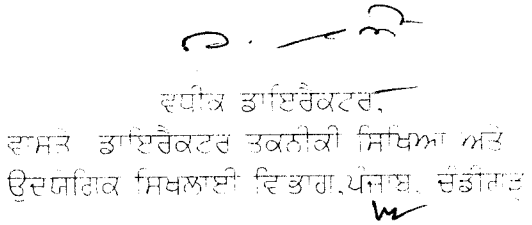 ਵਧੀਕ ਡਾਇਰੈਕਟਰ,
ਵਾਸਤੇ ਡਾਇਰੈਕਟਰ ਤਕਨੀਕੀ ਸਿਖਿਆ ਅਤੇ
ਉਦਯੋਗਿਕ ਸਿਖਲਾਈ ਵਿਭਾਗ,ਪੰਜਾਬ, ਚੰਡੀਗੜ੍ਹ